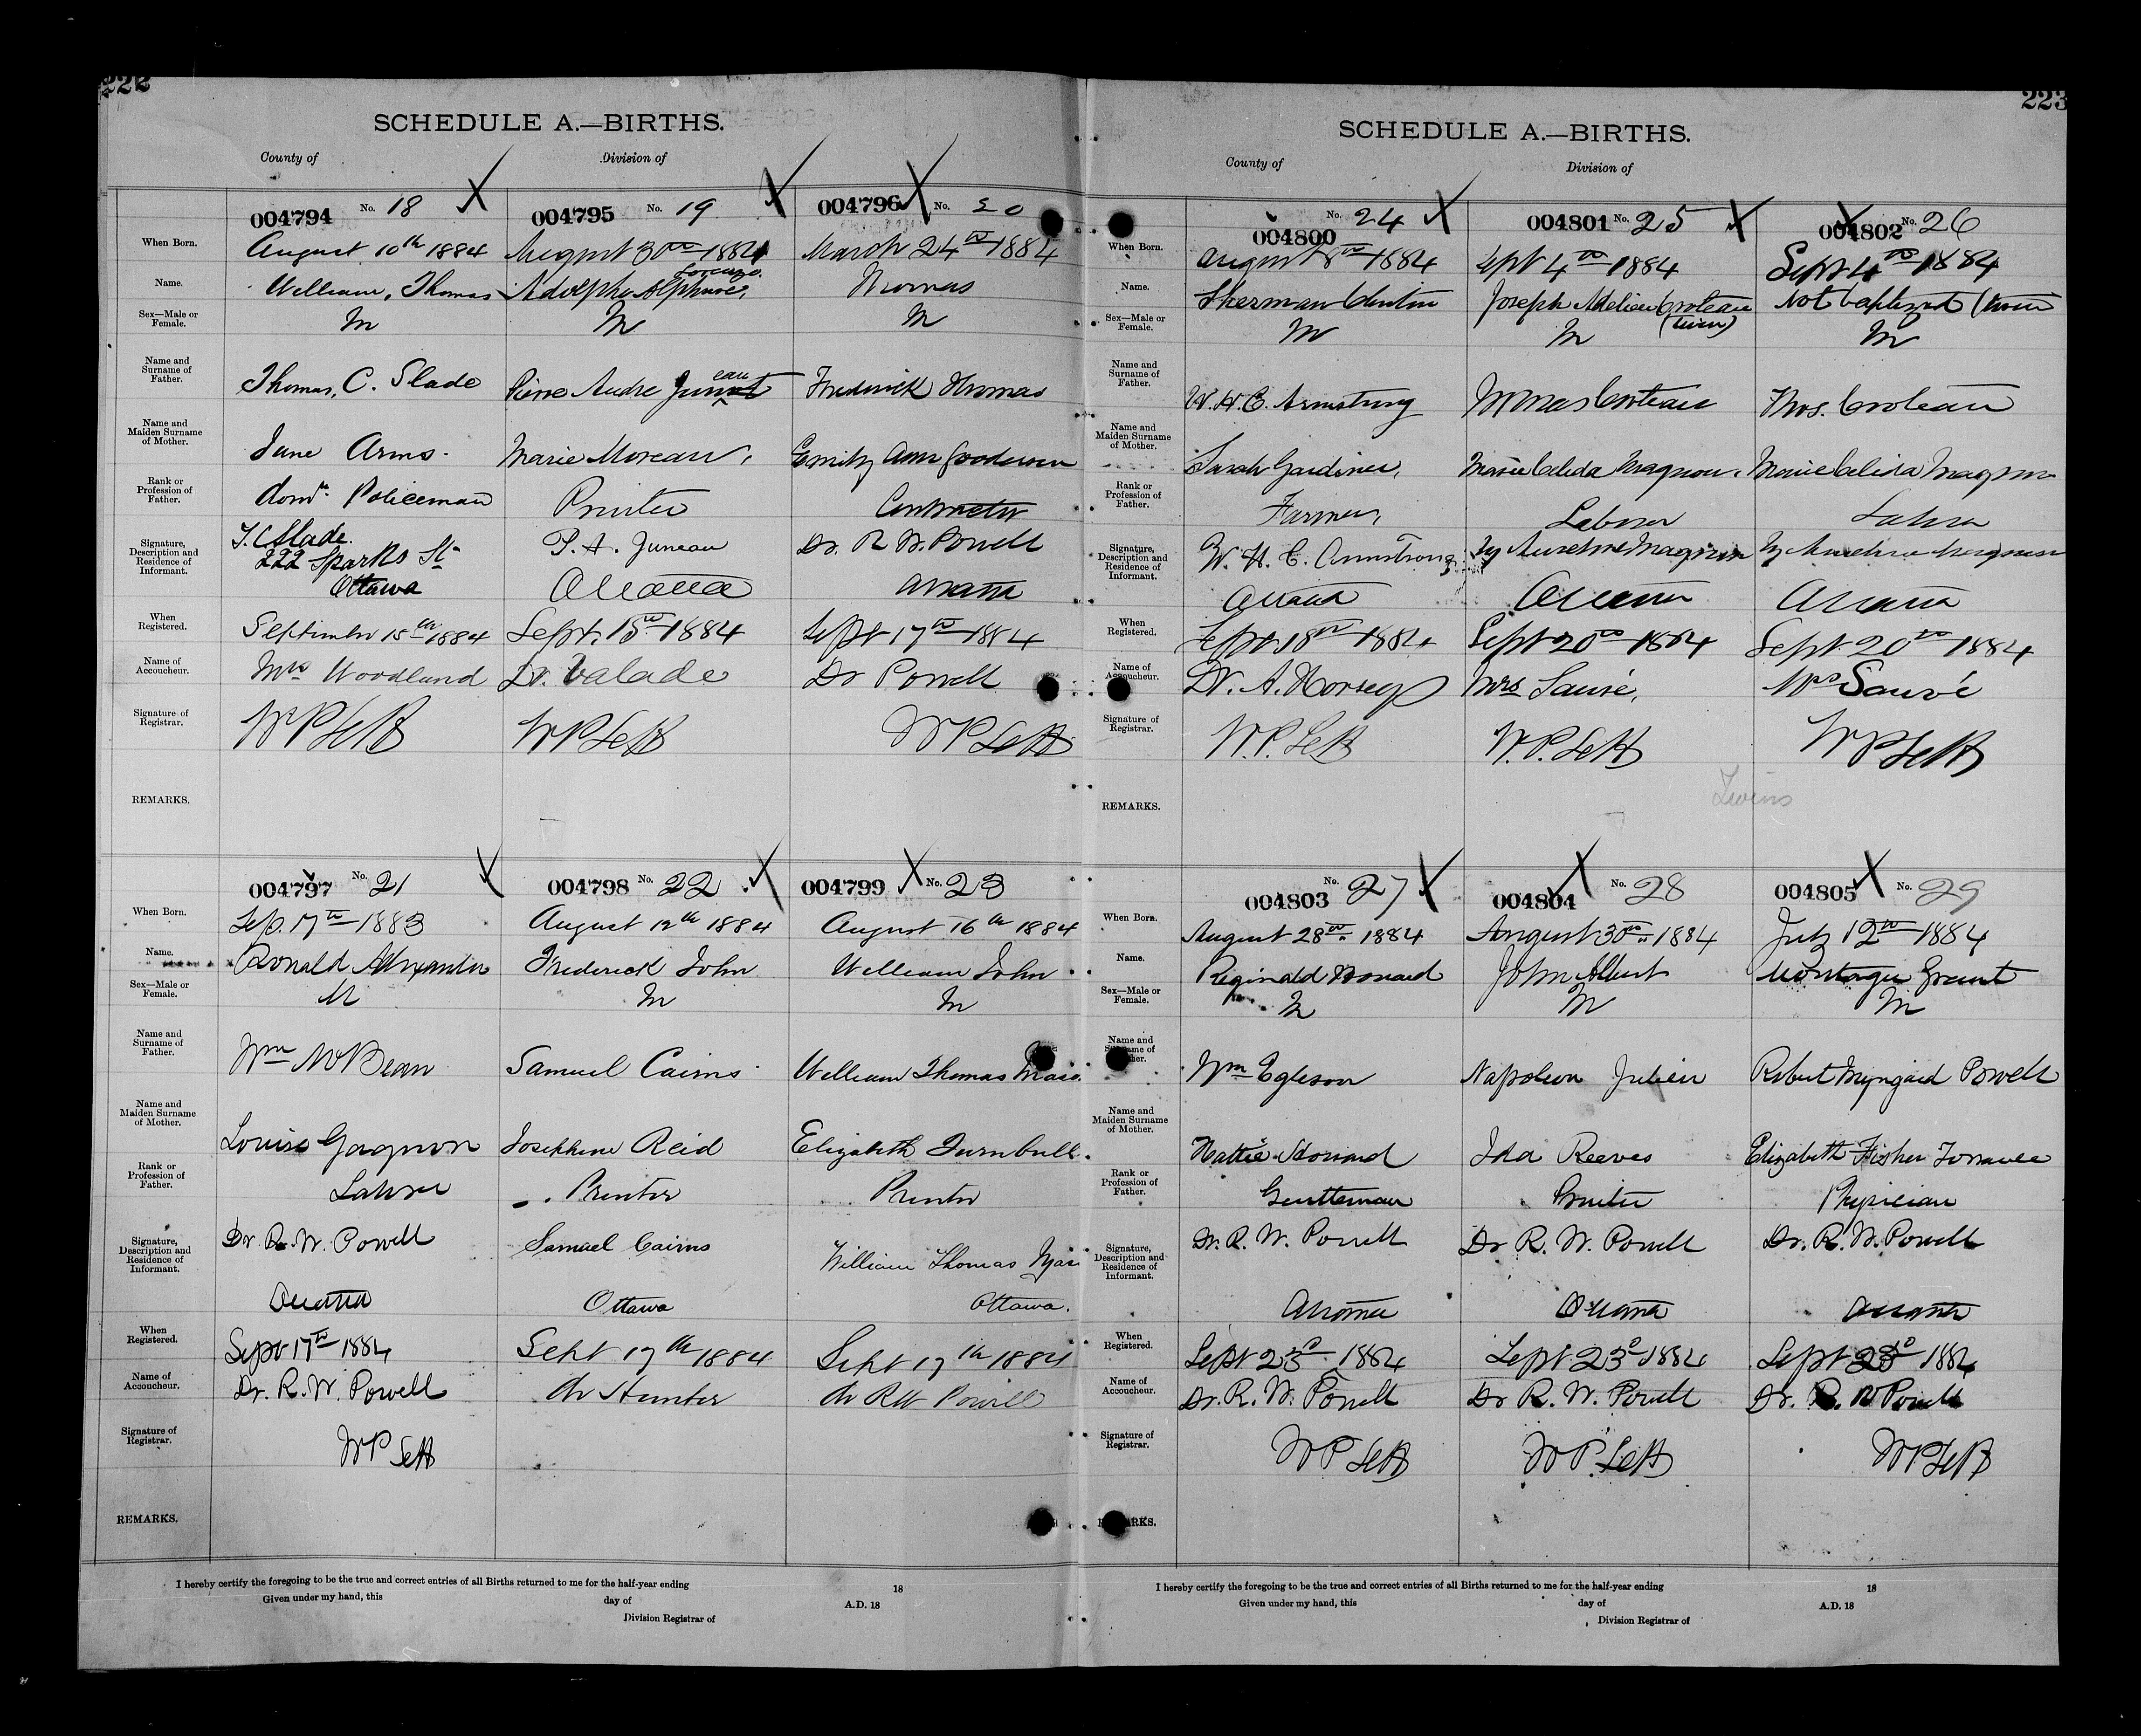 222
SCHEDULE A.—BIRTHS.
County of Division of
004794 No. 18 004795 No. 19 004796 No. 20
When Born. August 10th 1884 August 30th 1884 March 24th 1884
Name. William, Thomas Adolphe Alphonse Thomas
Sex—Male or Female. M M M
Name and Surname of Father. Thomas, C. Slade Pierre Andre Juneau Frederick Thomas
Name and Maiden Surname of Mother. Jane Arms. Marie Moreau, Emily Ann
Rank or Profession of Father. Domn. Policeman Printer Contractor
Signature, Description and Residence of Informant. T. C Slade. P. A. Juneau Dr. R W. Powell
222 Sparks St
Ottawa Ottawa Ottawa
When Registered. September 15th 1884 Sept. 15th 1884 Sept 17th 1884
Name of Accoucheur. Mrs Woodland Dr. Valade Dr Powell
Signature of Registrar. WP Lett WP Lett WP Lett
REMARKS.
004797 No. 21 004798 No. 22 004799 No. 23
When Born. Sep. 17th 1883 August 12th 1884 August 16th 1884
Name. Ronald Alexander Frederick John William John
Sex—Male or Female. M M M
Name and Surname of Father. Wm McBean Samuel Cairns William Thomas
Name and Maiden Surname of Mother. Louise Gagnon Josephine Reid Elizabeth Turnbull
Rank or Profession of Father. Labourer Printer Printer
Signature, Description and Residence of Informant. Dr. R. W. Powell Samuel Cairns William Thomas
Ottawa Ottawa Ottawa.
When Registered. Sept 17th 1884 Sept 17th 1884 Sept 17th 1884
Name of Accoucheur. Dr. R. W. Powell Dr Hunter Dr RW Powell
Signature of Registrar. WP Lett
REMARKS.
I hereby certify the foregoing to be the true and correct entries of all Births returned to me for the half-year ending 18
Given under my hand, this day of A.D. 18
Division Registrar of
223
SCHEDULE A.—BIRTHS.
County of Division of
004800 No. 24 004801 No. 25 004802 No. 26
When Born. August 8th 1884 Sept 4th 1884 Sept 4th 1884
Name. Sherman Clinton Joseph Croteau (twin) Not baptized (twin
Sex—Male or Female. M M M
Name and Surname of Father. W. H. C. Armstrong Thomas Croteau Thos. Croteau
Name and Maiden Surname of Mother. Sarah Gardiner, Marie Celida Magnon. Marie Celida Magnon
Rank or Profession of Father. Farmer, Labourer Labourer
Signature, Description and Residence of Informant. W. H. C. Armstrong by Anselme Magnon by Anselme Magnon
Ottawa Ottawa Ottawa
When Registered. Sept 18th 1884 Sept 20th 1884 Sept. 20th 1884
Name of Accoucheur. Dr. A. Horsey Mrs Sauvé, Mrs Sauvé
Signature of Registrar. W.P. Lett W.P. Lett WP Lett
REMARKS. Twins
004803 No. 27 004804 No. 28 004805 No. 29
When Born. August 28th 1884 August 30th 1884 July 12th 1884
Name. Reginald Howard John Albert Montague Grant
Sex—Male or Female. M M M
Name and Surname of Father. Wm Egleson Napoleon Julien Robert Wyngard Powell
Name and Maiden Surname of Mother. Hattie Howard Ida Reeves Elizabeth Fisher Torrance
Rank or Profession of Father. Gentleman Printer Physician
Signature, Description and Residence of Informant. Dr. R. W. Powell Dr R. W. Powell Dr. R. W. Powell
Ottawa Ottawa Ottawa
When Registered. Sept 23d 1884 Sept 23d 1884 Sept 23d 1884
Name of Accoucheur. Dr. R. W. Powell Dr R. W. Powell Dr. R. W Powell
Signature of Registrar. WP Lett WP. Lett WP Lett
REMARKS.
I hereby certify the foregoing to be the true and correct entries of all Births returned to me for the half-year ending 18
Given under my hand, this day of A.D. 18
Division Registrar of